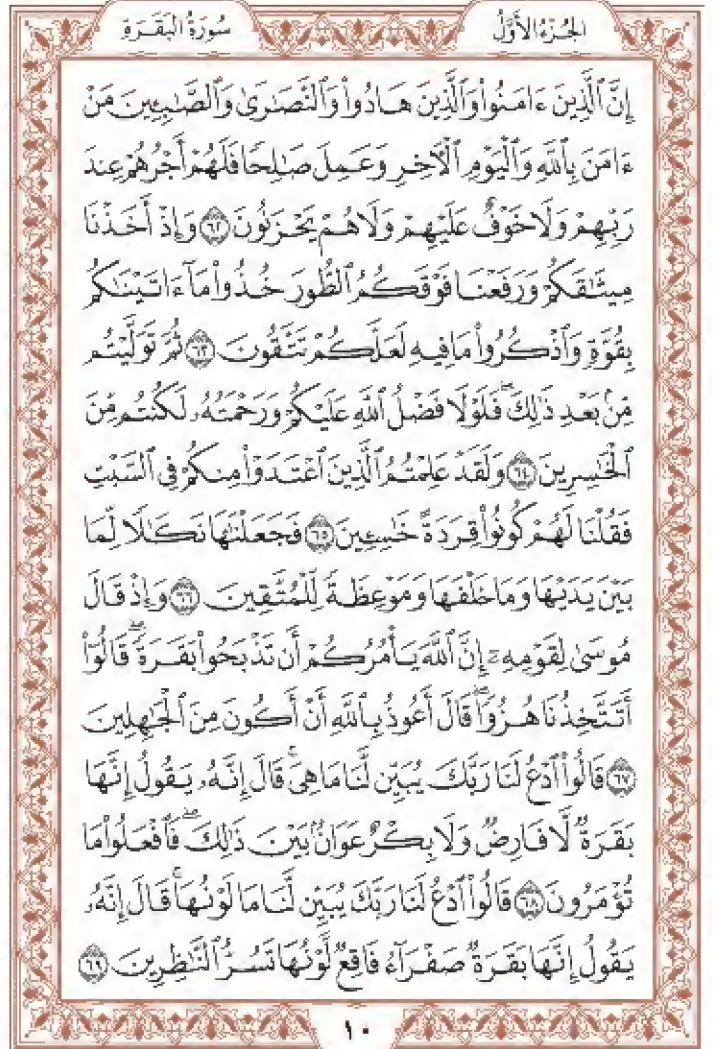 سُورَةُ البَقَـرَةِ
الجُزْءُ الأَوَّلُ
إِنَّ ٱلَّذِينَ ءَامَنُوا۟ وَٱلَّذِينَ هَادُوا۟ وَٱلنَّصَـٰرَىٰ وَٱلصَّـٰبِـِٔينَ مَنْ
ءَامَنَ بِٱللَّهِ وَٱلْيَوْمِ ٱلْـَٔاخِرِ وَعَمِلَ صَـٰلِحًا فَلَهُمْ أَجْرُهُمْ عِندَ
رَبِّهِمْ وَلَا خَوْفٌ عَلَيْهِمْ وَلَا هُمْ يَحْزَنُونَ ٦٢ وَإِذْ أَخَذْنَا
مِيثَـٰقَكُمْ وَرَفَعْنَا فَوْقَكُمُ ٱلطُّورَ خُذُوا۟ مَآ ءَاتَيْنَـٰكُم
بِقُوَّةٍ وَٱذْكُرُوا۟ مَا فِيهِ لَعَلَّكُمْ تَتَّقُونَ ٦٣ ثُمَّ تَوَلَّيْتُم
مِّنۢ بَعْدِ ذَٰلِكَ ۖ فَلَوْلَا فَضْلُ ٱللَّهِ عَلَيْكُمْ وَرَحْمَتُهُۥ لَكُنتُم مِّنَ
ٱلْخَـٰسِرِينَ ٦٤ وَلَقَدْ عَلِمْتُمُ ٱلَّذِينَ ٱعْتَدَوْا۟ مِنكُمْ فِى ٱلسَّبْتِ
فَقُلْنَا لَهُمْ كُونُوا۟ قِرَدَةً خَـٰسِـِٔينَ ٦٥ فَجَعَلْنَـٰهَا نَكَـٰلًا لِّمَا
بَيْنَ يَدَيْهَا وَمَا خَلْفَهَا وَمَوْعِظَةً لِّلْمُتَّقِينَ ٦٦ وَإِذْ قَالَ
مُوسَىٰ لِقَوْمِهِۦٓ إِنَّ ٱللَّهَ يَأْمُرُكُمْ أَن تَذْبَحُوا۟ بَقَرَةً ۖ قَالُوٓا۟
أَتَتَّخِذُنَا هُزُوًا ۖ قَالَ أَعُوذُ بِٱللَّهِ أَنْ أَكُونَ مِنَ ٱلْجَـٰهِلِينَ
٦٧ قَالُوا۟ ٱدْعُ لَنَا رَبَّكَ يُبَيِّن لَّنَا مَا هِىَ ۚ قَالَ إِنَّهُۥ يَقُولُ إِنَّهَا
بَقَرَةٌ لَّا فَارِضٌ وَلَا بِكْرٌ عَوَانٌۢ بَيْنَ ذَٰلِكَ ۖ فَٱفْعَلُوا۟ مَا
تُؤْمَرُونَ ٦٨ قَالُوا۟ ٱدْعُ لَنَا رَبَّكَ يُبَيِّن لَّنَا مَا لَوْنُهَا ۚ قَالَ إِنَّهُۥ
يَقُولُ إِنَّهَا بَقَرَةٌ صَفْرَآءُ فَاقِعٌ لَّوْنُهَا تَسُرُّ ٱلنَّـٰظِرِينَ ٦٩
١٠